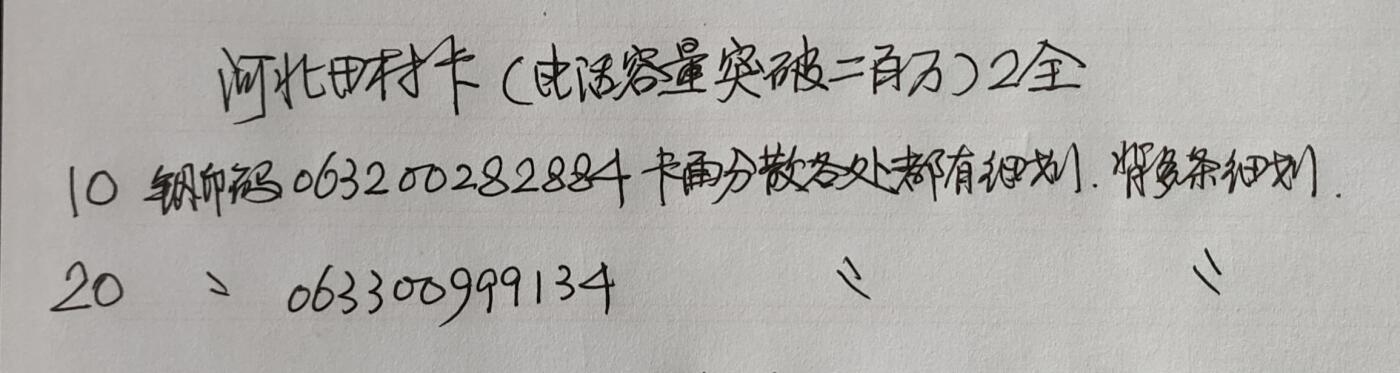 河北田村卡(电话容量突破二百万)2全
10 钢印码063200282884卡面分散各处都有细划.背多条细划.
20 〃 063300999134 〃 〃